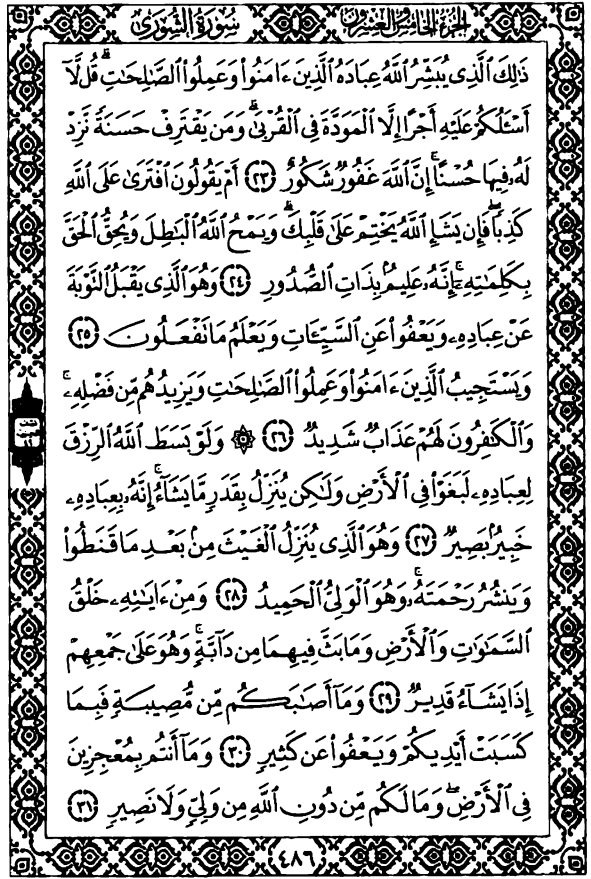 الجزء الخامس والعشرون سورة الشورى
ذَٰلِكَ ٱلَّذِى يُبَشِّرُ ٱللَّهُ عِبَادَهُ ٱلَّذِينَ ءَامَنُوا۟ وَعَمِلُوا۟ ٱلصَّـٰلِحَـٰتِ ۗ قُل لَّآ
أَسْـَٔلُكُمْ عَلَيْهِ أَجْرًا إِلَّا ٱلْمَوَدَّةَ فِى ٱلْقُرْبَىٰ ۗ وَمَن يَقْتَرِفْ حَسَنَةً نَّزِدْ
لَهُۥ فِيهَا حُسْنًا ۚ إِنَّ ٱللَّهَ غَفُورٌ شَكُورٌ ٢٣ أَمْ يَقُولُونَ ٱفْتَرَىٰ عَلَى ٱللَّهِ
كَذِبًا ۖ فَإِن يَشَإِ ٱللَّهُ يَخْتِمْ عَلَىٰ قَلْبِكَ ۗ وَيَمْحُ ٱللَّهُ ٱلْبَـٰطِلَ وَيُحِقُّ ٱلْحَقَّ
بِكَلِمَـٰتِهِۦٓ ۚ إِنَّهُۥ عَلِيمٌۢ بِذَاتِ ٱلصُّدُورِ ٢٤ وَهُوَ ٱلَّذِى يَقْبَلُ ٱلتَّوْبَةَ
عَنْ عِبَادِهِۦ وَيَعْفُوا۟ عَنِ ٱلسَّيِّـَٔاتِ وَيَعْلَمُ مَا تَفْعَلُونَ ٢٥
وَيَسْتَجِيبُ ٱلَّذِينَ ءَامَنُوا۟ وَعَمِلُوا۟ ٱلصَّـٰلِحَـٰتِ وَيَزِيدُهُم مِّن فَضْلِهِۦ ۚ
وَٱلْكَـٰفِرُونَ لَهُمْ عَذَابٌ شَدِيدٌ ٢٦ ۞ وَلَوْ بَسَطَ ٱللَّهُ ٱلرِّزْقَ
لِعِبَادِهِۦ لَبَغَوْا۟ فِى ٱلْأَرْضِ وَلَـٰكِن يُنَزِّلُ بِقَدَرٍ مَّا يَشَآءُ ۚ إِنَّهُۥ بِعِبَادِهِۦ
خَبِيرٌۢ بَصِيرٌ ٢٧ وَهُوَ ٱلَّذِى يُنَزِّلُ ٱلْغَيْثَ مِنۢ بَعْدِ مَا قَنَطُوا۟
وَيَنشُرُ رَحْمَتَهُۥ ۚ وَهُوَ ٱلْوَلِىُّ ٱلْحَمِيدُ ٢٨ وَمِنْ ءَايَـٰتِهِۦ خَلْقُ
ٱلسَّمَـٰوَٰتِ وَٱلْأَرْضِ وَمَا بَثَّ فِيهِمَا مِن دَآبَّةٍ ۚ وَهُوَ عَلَىٰ جَمْعِهِمْ
إِذَا يَشَآءُ قَدِيرٌ ٢٩ وَمَآ أَصَـٰبَكُم مِّن مُّصِيبَةٍ فَبِمَا
كَسَبَتْ أَيْدِيكُمْ وَيَعْفُوا۟ عَن كَثِيرٍ ٣٠ وَمَآ أَنتُم بِمُعْجِزِينَ
فِى ٱلْأَرْضِ ۖ وَمَا لَكُم مِّن دُونِ ٱللَّهِ مِن وَلِىٍّ وَلَا نَصِيرٍ ٣١
٤٨٦